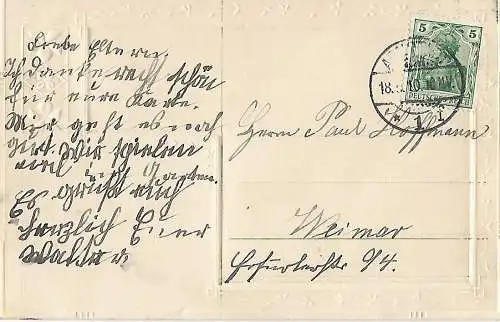 Liebe Eltern.
Ich danke recht schön
für eure Karte.
Mir geht es noch
gut. Wir spielen
Es grüßt euch
herzlich Euer
Walter
Herrn Paul Hoffmann
Weimar
Erfurterstr 94.
5 5
DEUTSCHES REICH
18.
10